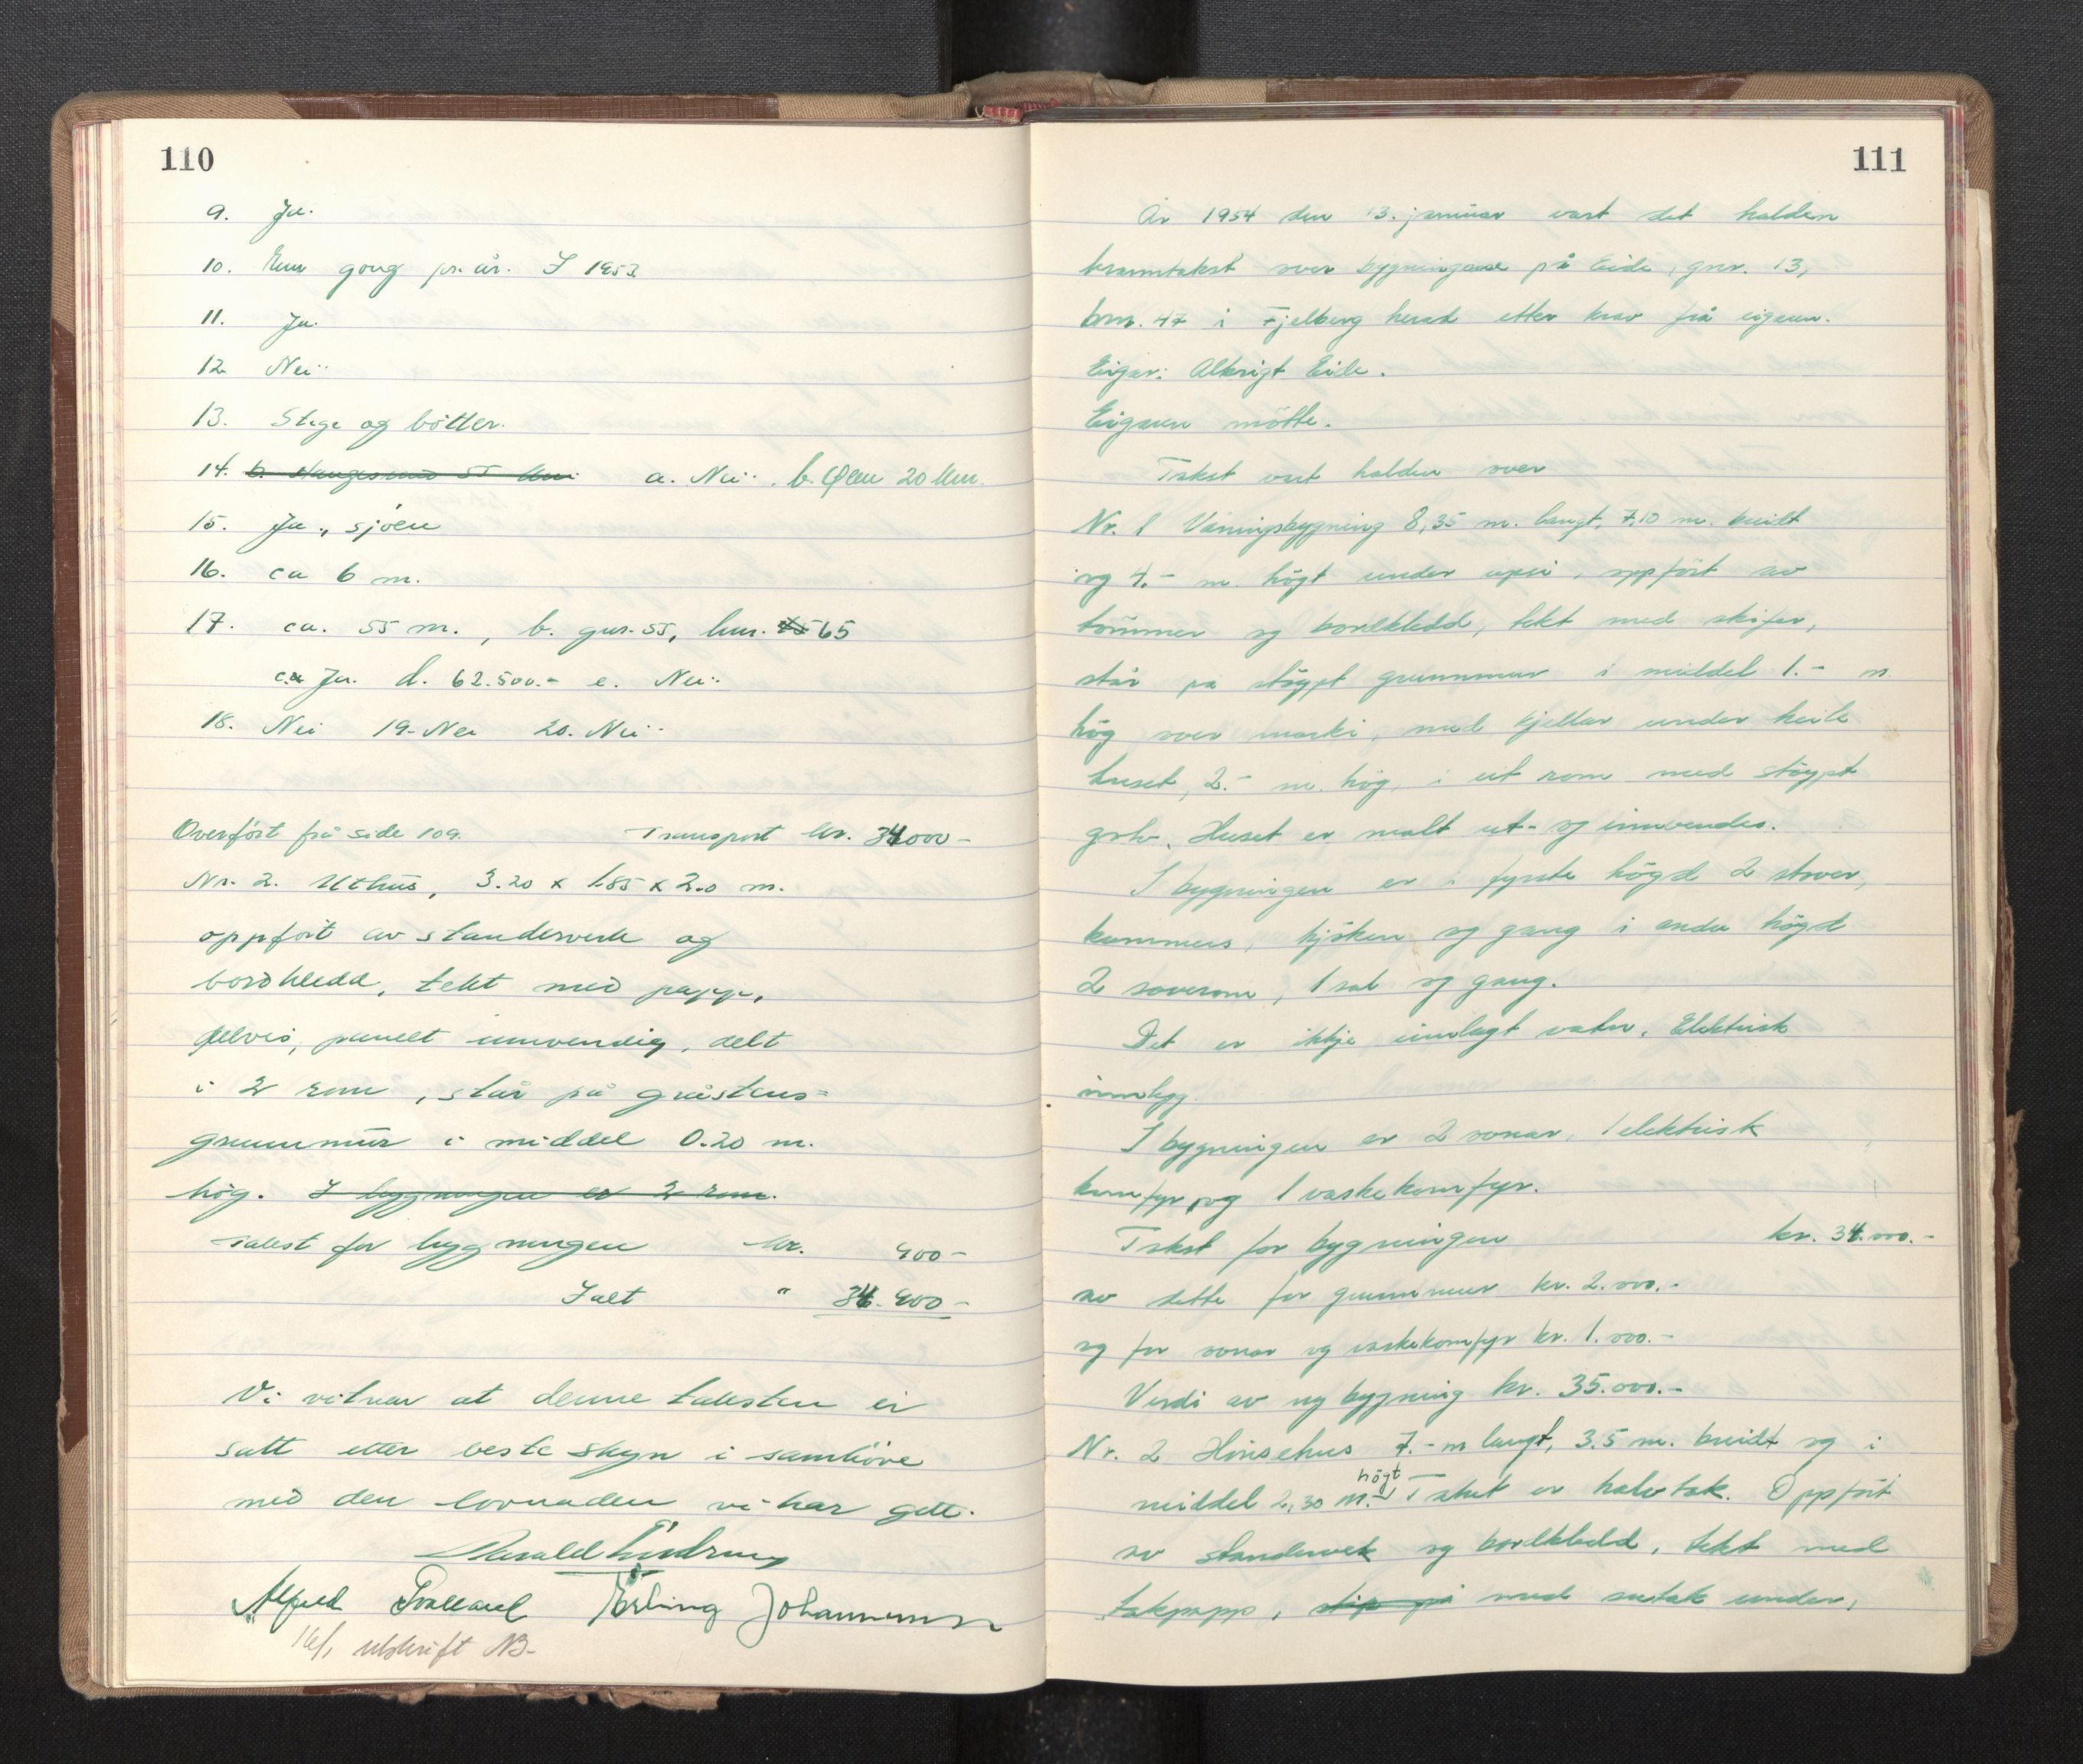 110
9. Ja.
10. Ein gong pr. år. I 1953.
11. Ja.
12. Nei
13. Stige og bötter.
14. b. Haugesund 55 km. a. Nei. b. Ølen 20 km.
15. Ja, sjöen
16. ca 6 m.
17. ca. 55 m., b. gnr. 55, bnr. 65
c. Ja. d. 62.500.- e. Nei
18. Nei 19. Nei 20. Nei
Overfört frå side 109. Transport kr. 34000-
Nr. 2. Uthus, 3.20 x 1.85 x 2.0 m.
oppfört av standerverk og
bordkledd, tekt med papp,
delvis, panelt innvendig, delt
i 2 rom, står på gråsteins=
grunnmur i middel 0.20 m.
hög. I byggningen er 2 rom.
Takst for byggningen kr. 400-
Ialt " 34.400-
Vi vitnar at denne taksten er
satt etter beste skyn i samhöve
med den lovnaden vi har gett.
Alfred Erling Johannessen
16/1 utskrift NB-
111
År 1954 den 13. januar vart det halden
branntakst over bygningane på Eide, gnr. 13,
bnr. 47 i Fjelberg herad etter krav frå eigaren.
Eigar: Albrigt Eide.
Eigaren mötte.
Takst vart halden over
Nr. 1 Våningsbygning 8,35 m. langt, 7,10 m. breidt
og 4.- m. högt under upsi, oppfört av
tömmer og bordkledd, tekt med skifer,
står på stöypt grunnmur i middel 1.- m.
hög over marki, med kjellar under heile
huset, 2.- m. hög, i eit rom med stöypt
golv. Huset er malt ut- og innvendes.
I bygningen er i fyrste högd 2 stover,
kammers, kjöken og gang i andre högd
2 soverom, 1 sal og gang.
Det er ikkje innlagt vatn. Elektrisk
innlegg.
I bygningen er 2 omnar, 1 elektrisk
komfyr, og 1 vaskekomfyr.
Takst for bygningen kr. 34.000.-
av dette for grunnmur kr. 2.000.-
og for omnar og vaskekomfyr kr. 1.000.-
Verdi av ny bygning kr. 35.000.-
Nr. 2 Hönsehus 7.- m langt, 3.5 m. breidt og i
middel 2,30 m. högt Taket er halvtak. Oppfört
av standerverk og bordkledd, tekt med
takpapp, med sutak under,